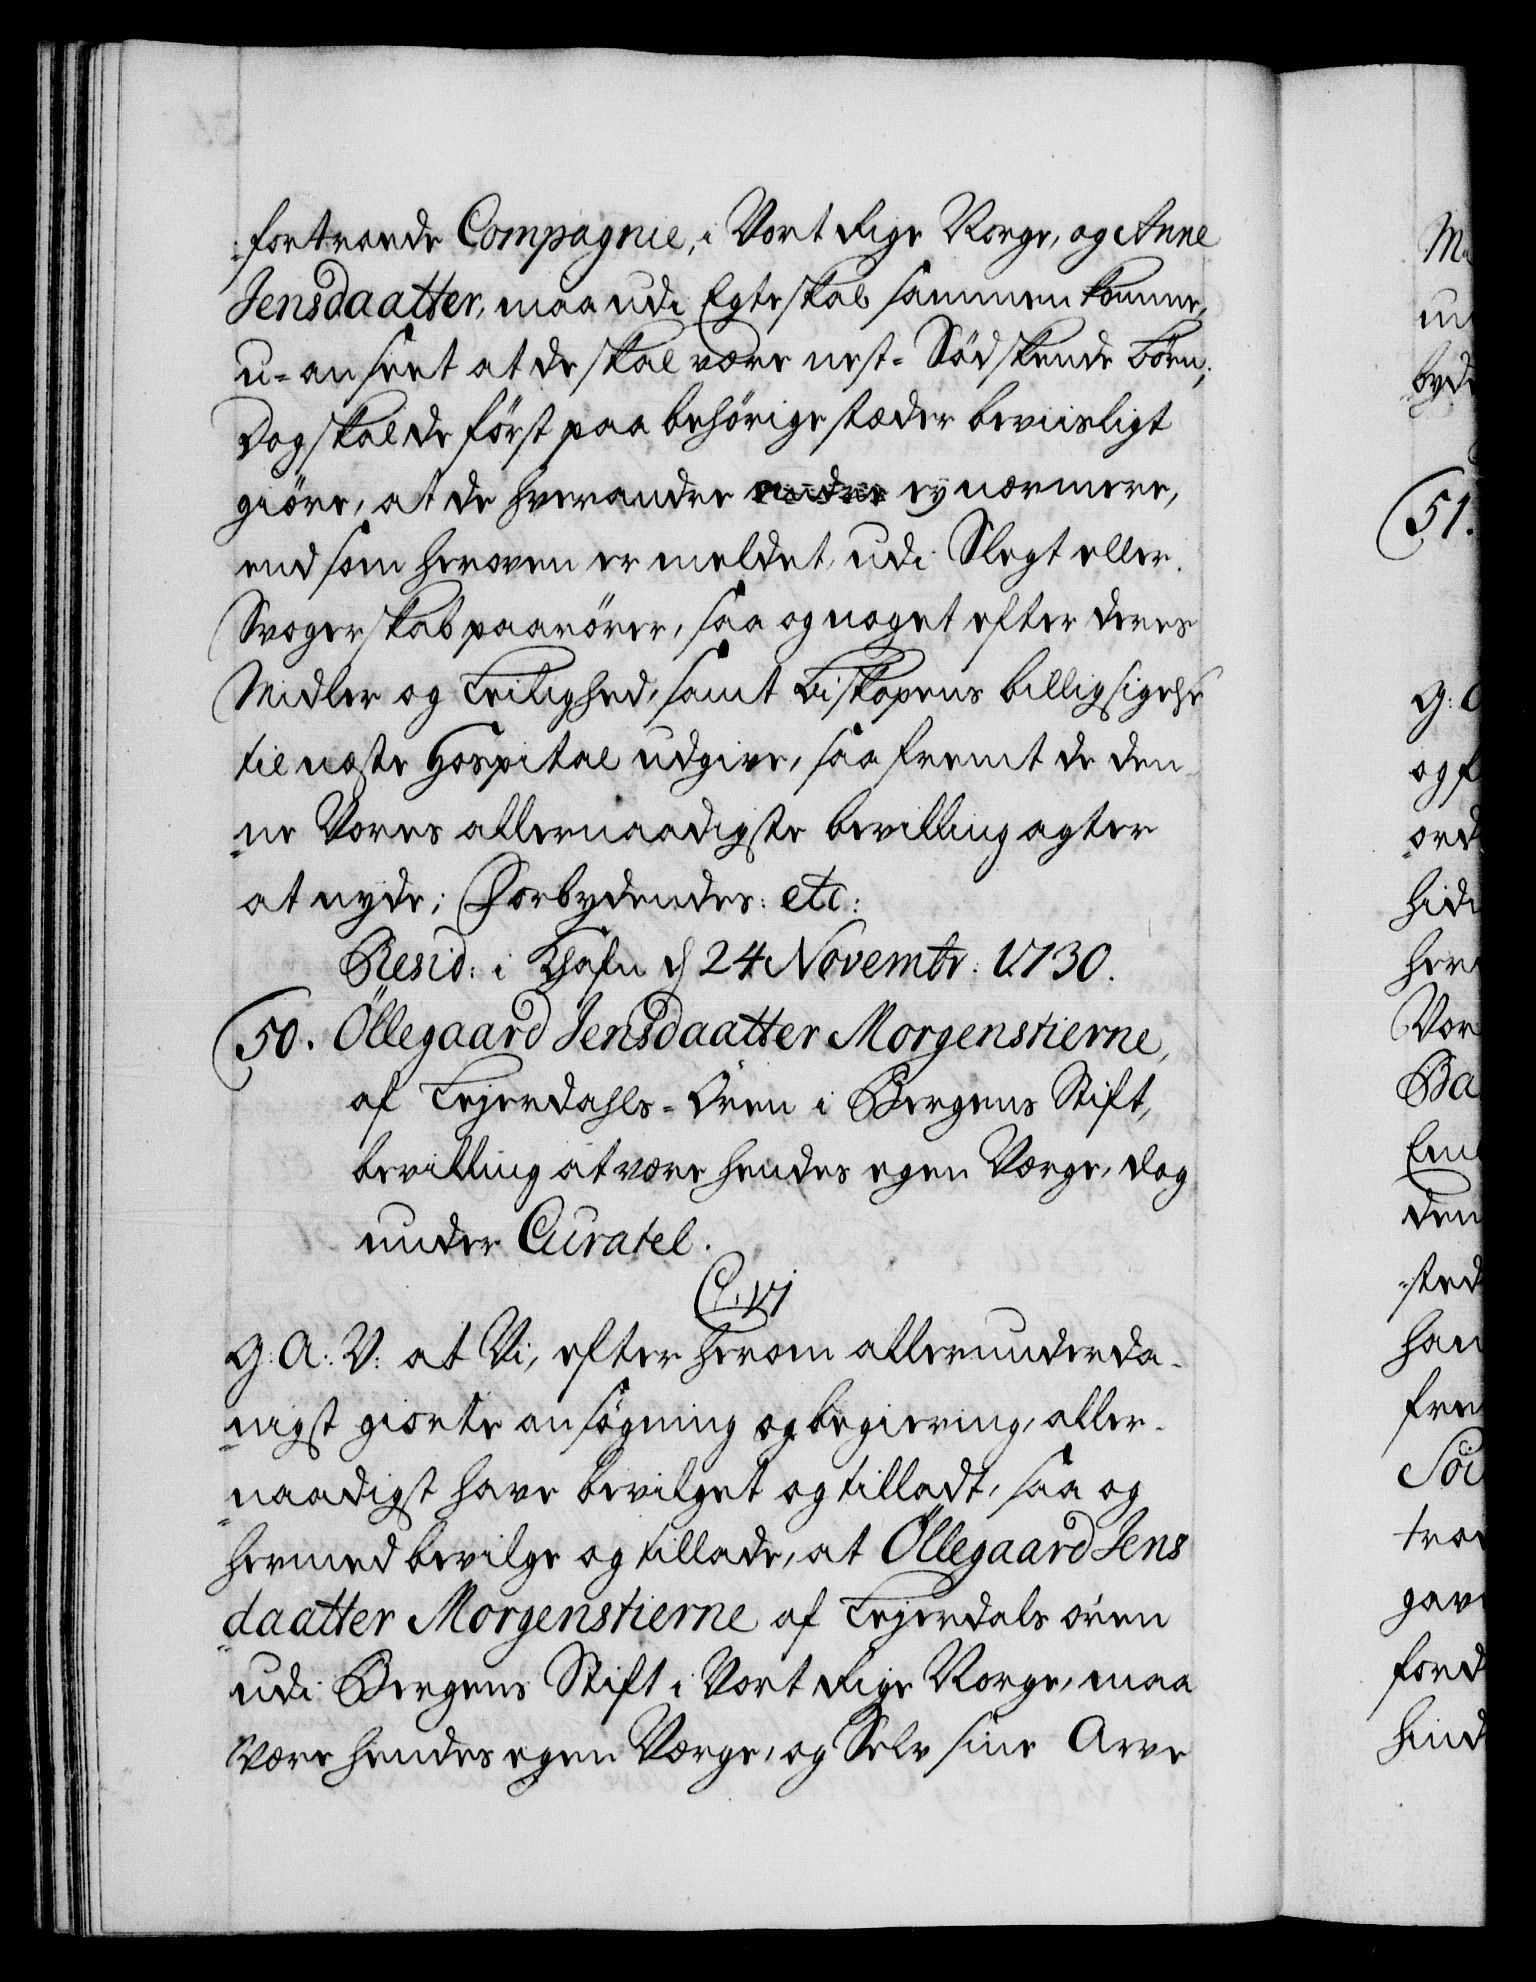 fortroende Compagnie, i Vort Rige Norge, og Anne
Jensdaatter, maa udi Egteskab sammen komme,
u-anseet at de skal være nest-Södskende Börn;
Dog skal de först paa behörige stæder beviisligt
giöre, at de hverandre ey nærmere,
end som heroven er meldet, udi Slegt eller
Svogerskab paarörer, saa og noget efter deres
Midler og Leilighed, samt Biskopens billigsigelse
til næste Hospital udgive, saafremt de den-
ne Vores allernaadigste bevilling agter
at nyde; Forbydendes: etc:
Resid: i Khafn d 24 Novembr: 1730.
50. Öllegaard Jensdaatter Morgenstierne,
af Lejerdahls-Ören i Bergens Stift,
bevilling at være hendes egen Værge, dog
under Curatel.
C. VI
G: A: V: at Vi, efter herom allerunderda-
nigst giorte ansögning og begiering, aller-
naadigst have bevilget og tilladt, saa og
hermed bevilge og tillade, at Öllegaard Jens
daatter Morgenstierne af Lejerdals ören
udi Bergens Stift i Vort Rige Norge, maa
være hendes egen Værge, og Selv sine Arve
51.